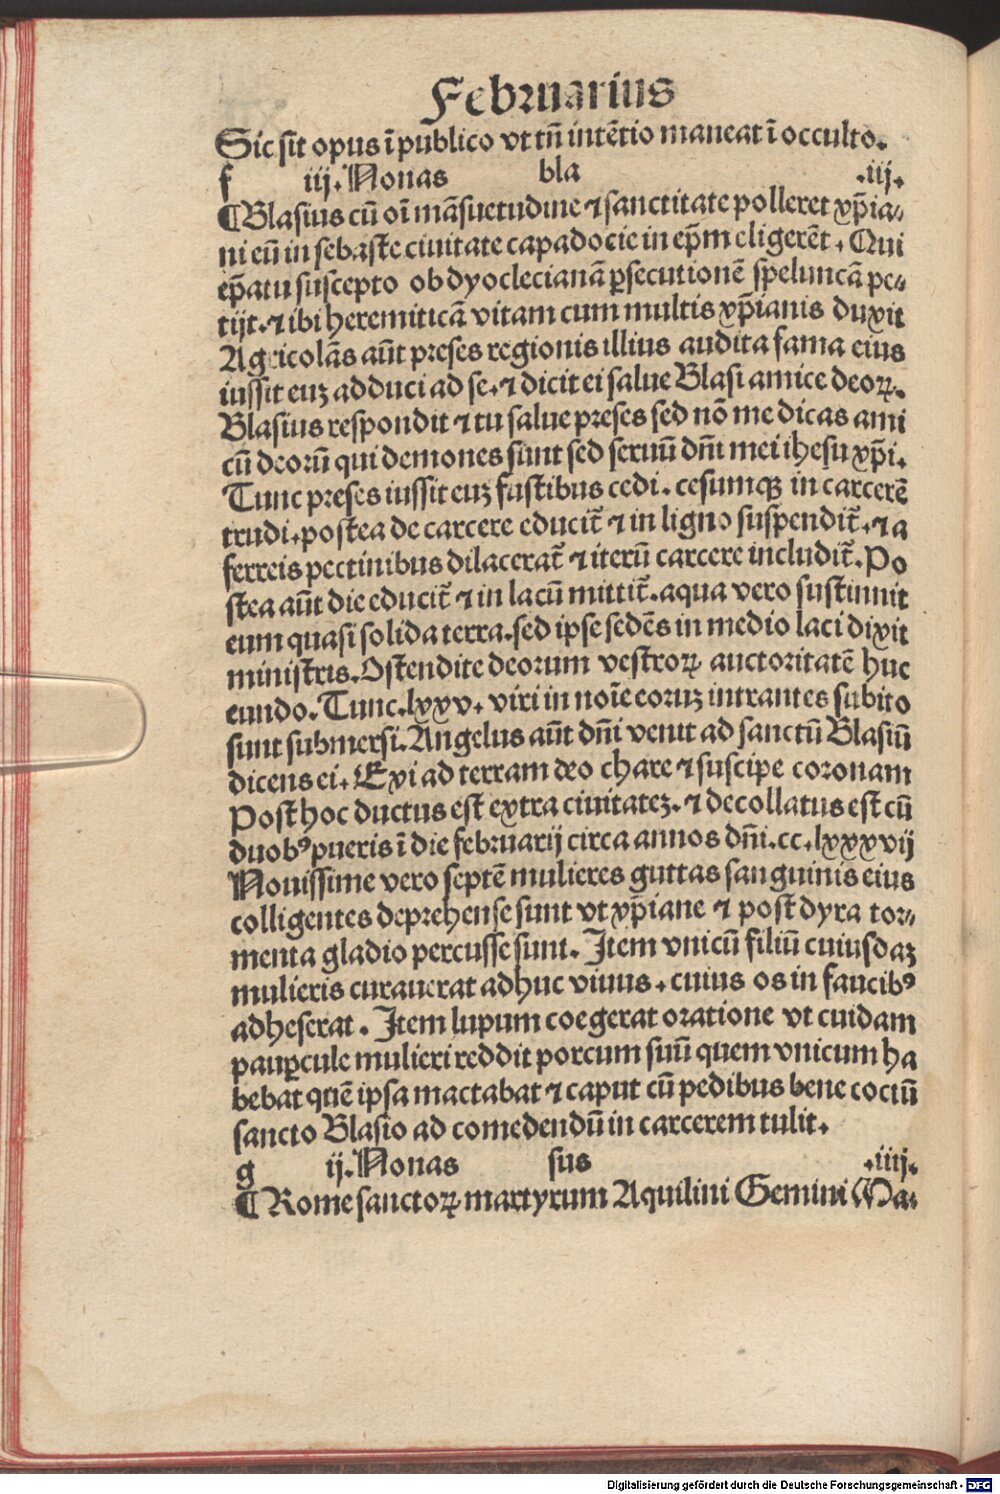 Februarius
Sic sit opus ī publico vt tn̄ intētio maneat ī occulto.
f iij. Nonas bla .iij.
¶ Blasius cū oī māsuetudine ⁊ sanctitate polleret xp̄ia⸗
ni eū in sebaste ciuitate capadocie in ep̄m eligerēt. Qui
ep̄atu suscepto ob dyoclecianā ꝑsecutionē speluncā pe⸗
tijt. ⁊ ibi heremiticā vitam cum multis xp̄ianis duxit
Agricolās aūt preses regionis illius audita fama eius
iussit euꝫ adduci ad se. ⁊ dicit ei salue Blasi amice deoꝝ.
Blasius respondit ⁊ tu salue preses sed nō me dicas ami
cū deorū qui demones sunt sed seruū dn̄i mei ihesu xp̄i.
Tunc preses iussit euꝫ fustibus cedi. cesumqꝫ in carcerē
trudi. postea de carcere educit̄ ⁊ in ligno suspendit̄. ⁊ a
ferreis pectinibus dilacerat̄ ⁊ iterū carcere includit̄. Po
stea aūt die educit̄ ⁊ in lacū mittit̄. aqua vero sustinuit
eum quasi solida terra. sed ipse sedēs in medio laci dixit
ministris. Ostendite deorum vestroꝝ auctoritatē huc
eundo. Tunc .lxxv. viri in noīe eoruꝫ intrantes subito
sunt submersi. Angelus aūt dn̄i venit ad sanctū Blasiū
dicens ei. Exi ad terram deo chare ⁊ suscipe coronam
Post hoc ductus est extra ciuitateꝫ. ⁊ decollatus est cū
duobꝰ pueris ī die februarij circa annos dn̄i. cc. lxxxvij
Nouissime vero septē mulieres guttas sanguinis eius
colligentes deprehense sunt vt xp̄iane ⁊ post dyra tor⸗
menta gladio percusse sunt. Item vnicū filiū cuiusdaꝫ
mulieris curauerat adhuc viuus. cuius os in faucibꝰ
adheserat. Item lupum coegerat oratione vt cuidam
pauꝑcule mulieri reddit porcum suū quem vnicum ha
bebat quē ipsa mactabat ⁊ caput cū pedibus bene coctū
sancto Blasio ad comedendū in carcerem tulit.
g ij. Nonas sus .iiij.
¶ Rome sanctoꝝ martyrum Aquilini Gemini Ma⸗
Digitalisierung gefördert durch die Deutsche Forschungsgemeinschaft - DFG